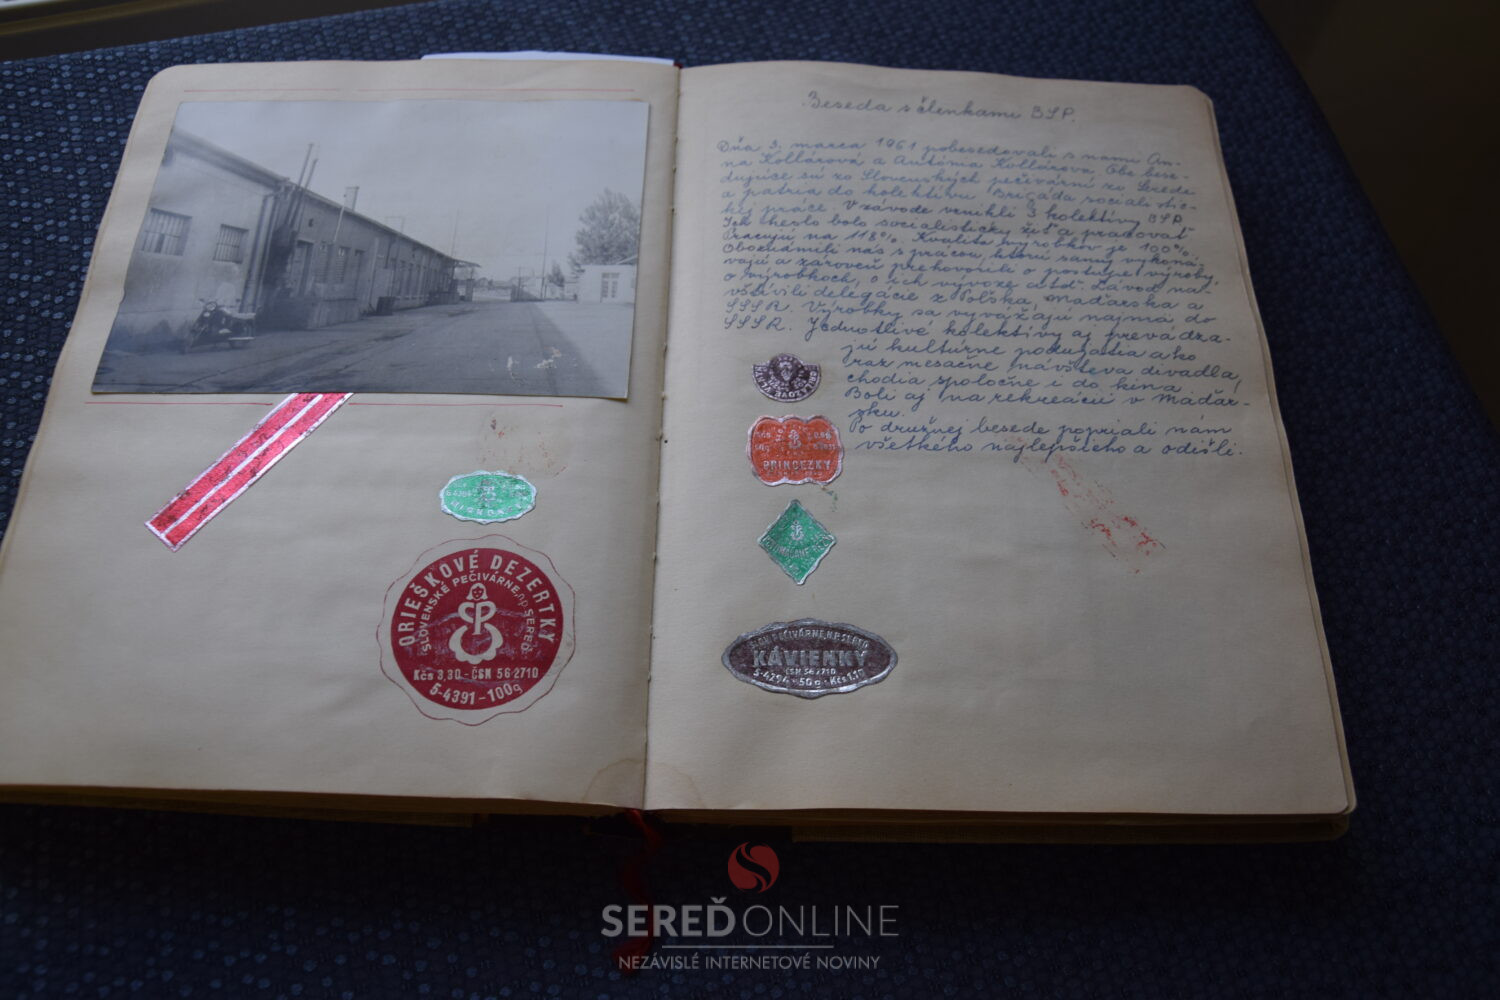 Beseda s členkami BSP.
Dňa 3. marca 1961 pobesedovali s nami An-
na Kollárová a Antónia Kollárova. Obe bese-
dujúce sú zo Slovenských pečivární zo Serede
a patria do kolektívu Brigáda socialistic-
kej práce. V závode vznikli 3 kolektívy BSP.
Ich heslo bolo socialisticky žiť a pracovať
Pracujú na 118%. Kvalita výrobkov je 100%.
Oboznámili nás s prácou, ktorú samy vykoná-
vajú a zároveň prehovorili o postupe výroby,
o výrobkoch, o ich vývoze atď. Závod na-
vštívili delegácie z Poľska, Maďarska a
SSSR. Výrobky sa vyvážajú najmä do
SSSR. Jednotlivé kolektívy aj prevádza-
jú kultúrne podujatia ako
raz mesačne návšteva divadla,
chodia spoločne i do kina.
Boli aj na rekreácii v Maďar-
sku.
Po družnej besede popriali nám
všetkého najlepšieho a odišli.
ORIEŠKOVÉ DEZERTKY
SLOVENSKÉ PEČIVÁRNE, n.p. SEREĎ
Kčs 3,30 - ČSN 56 2710
5-4391 - 100g
PRINCEZKY
PEČIVÁRNE, N.P. SEREĎ
KÁVIENKY
ČSN 56 2710
5-4294 - 50g - Kčs 1,10
SEREĎ ONLINE
NEZÁVISLÉ INTERNETOVÉ NOVINY